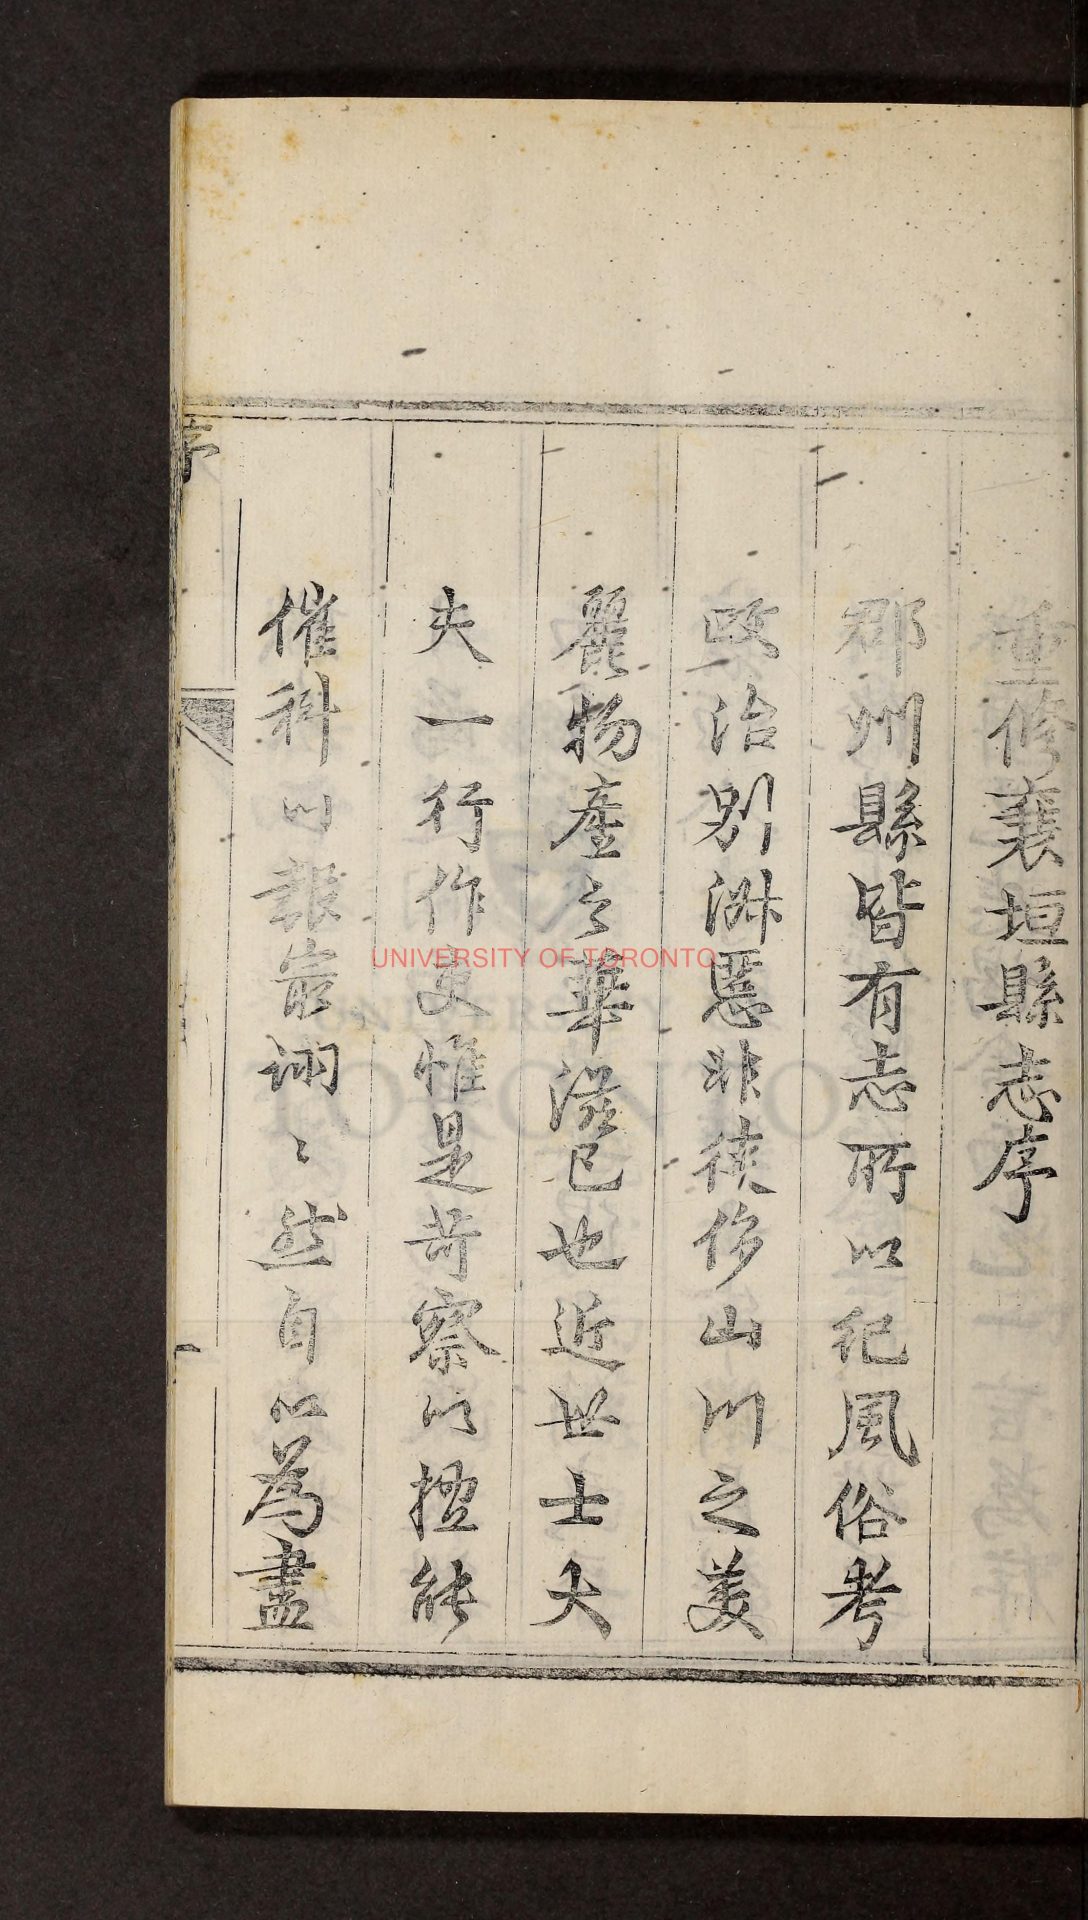 重修襄垣縣志序
郡州縣皆有志所以紀風俗考
政治別淑慝非徒侈山川之美
麗物產之華滋已也近世士大
夫一行作吏惟是苛察以擅能
催科以報最詡〻然自以為盡
序
一
UNIVERSITY OF TORONTO